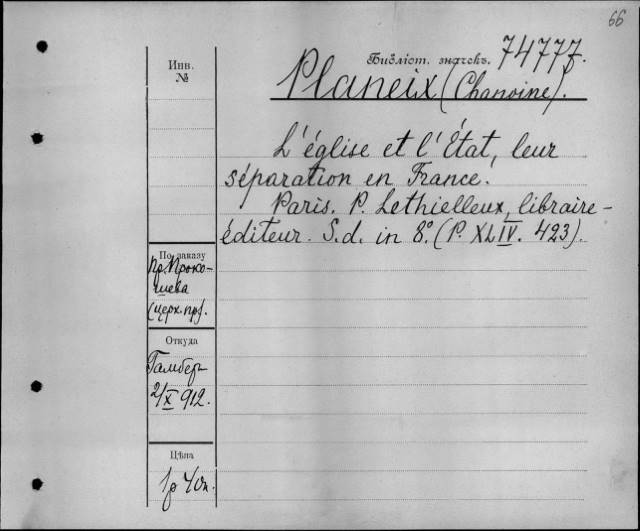 66
Библіот. значекъ. 74777.
Инв.
№
Planeix (Chanoine).
L'église et l'État, leur
séparation en France.
Paris. P. Lethielleux, libraire-
éditeur. S.d. in 8º. (P. XLIV. 423).
По заказу
Пр. Проко-
шева
(церк. пр).
Откуда
Гамбер
2/X 912.
Цѣна
1р 40к.